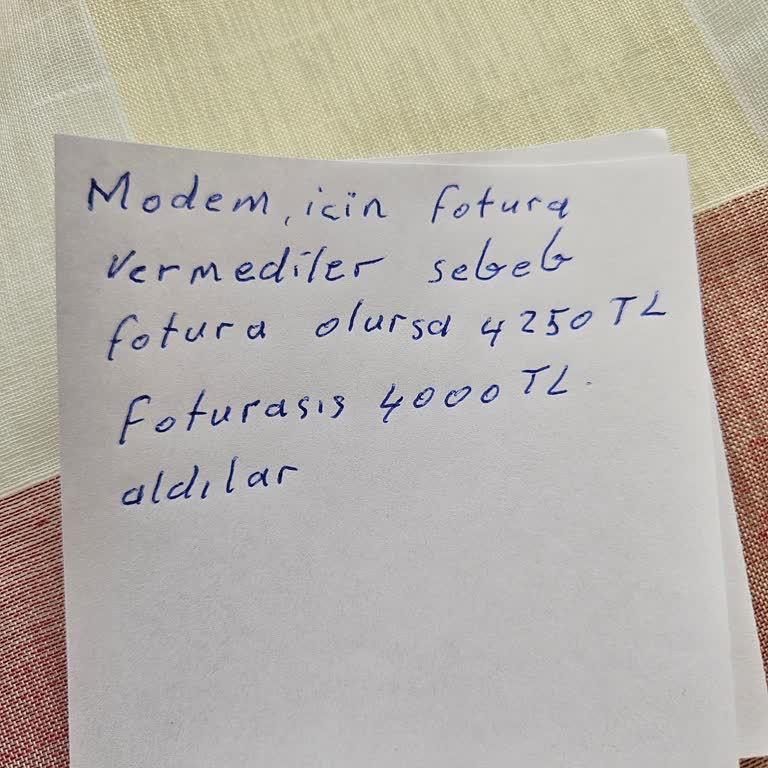 Modem, için fotura
vermediler sebeb
fotura olursa 4250 TL
Foturasıs 4000 TL.
aldılar